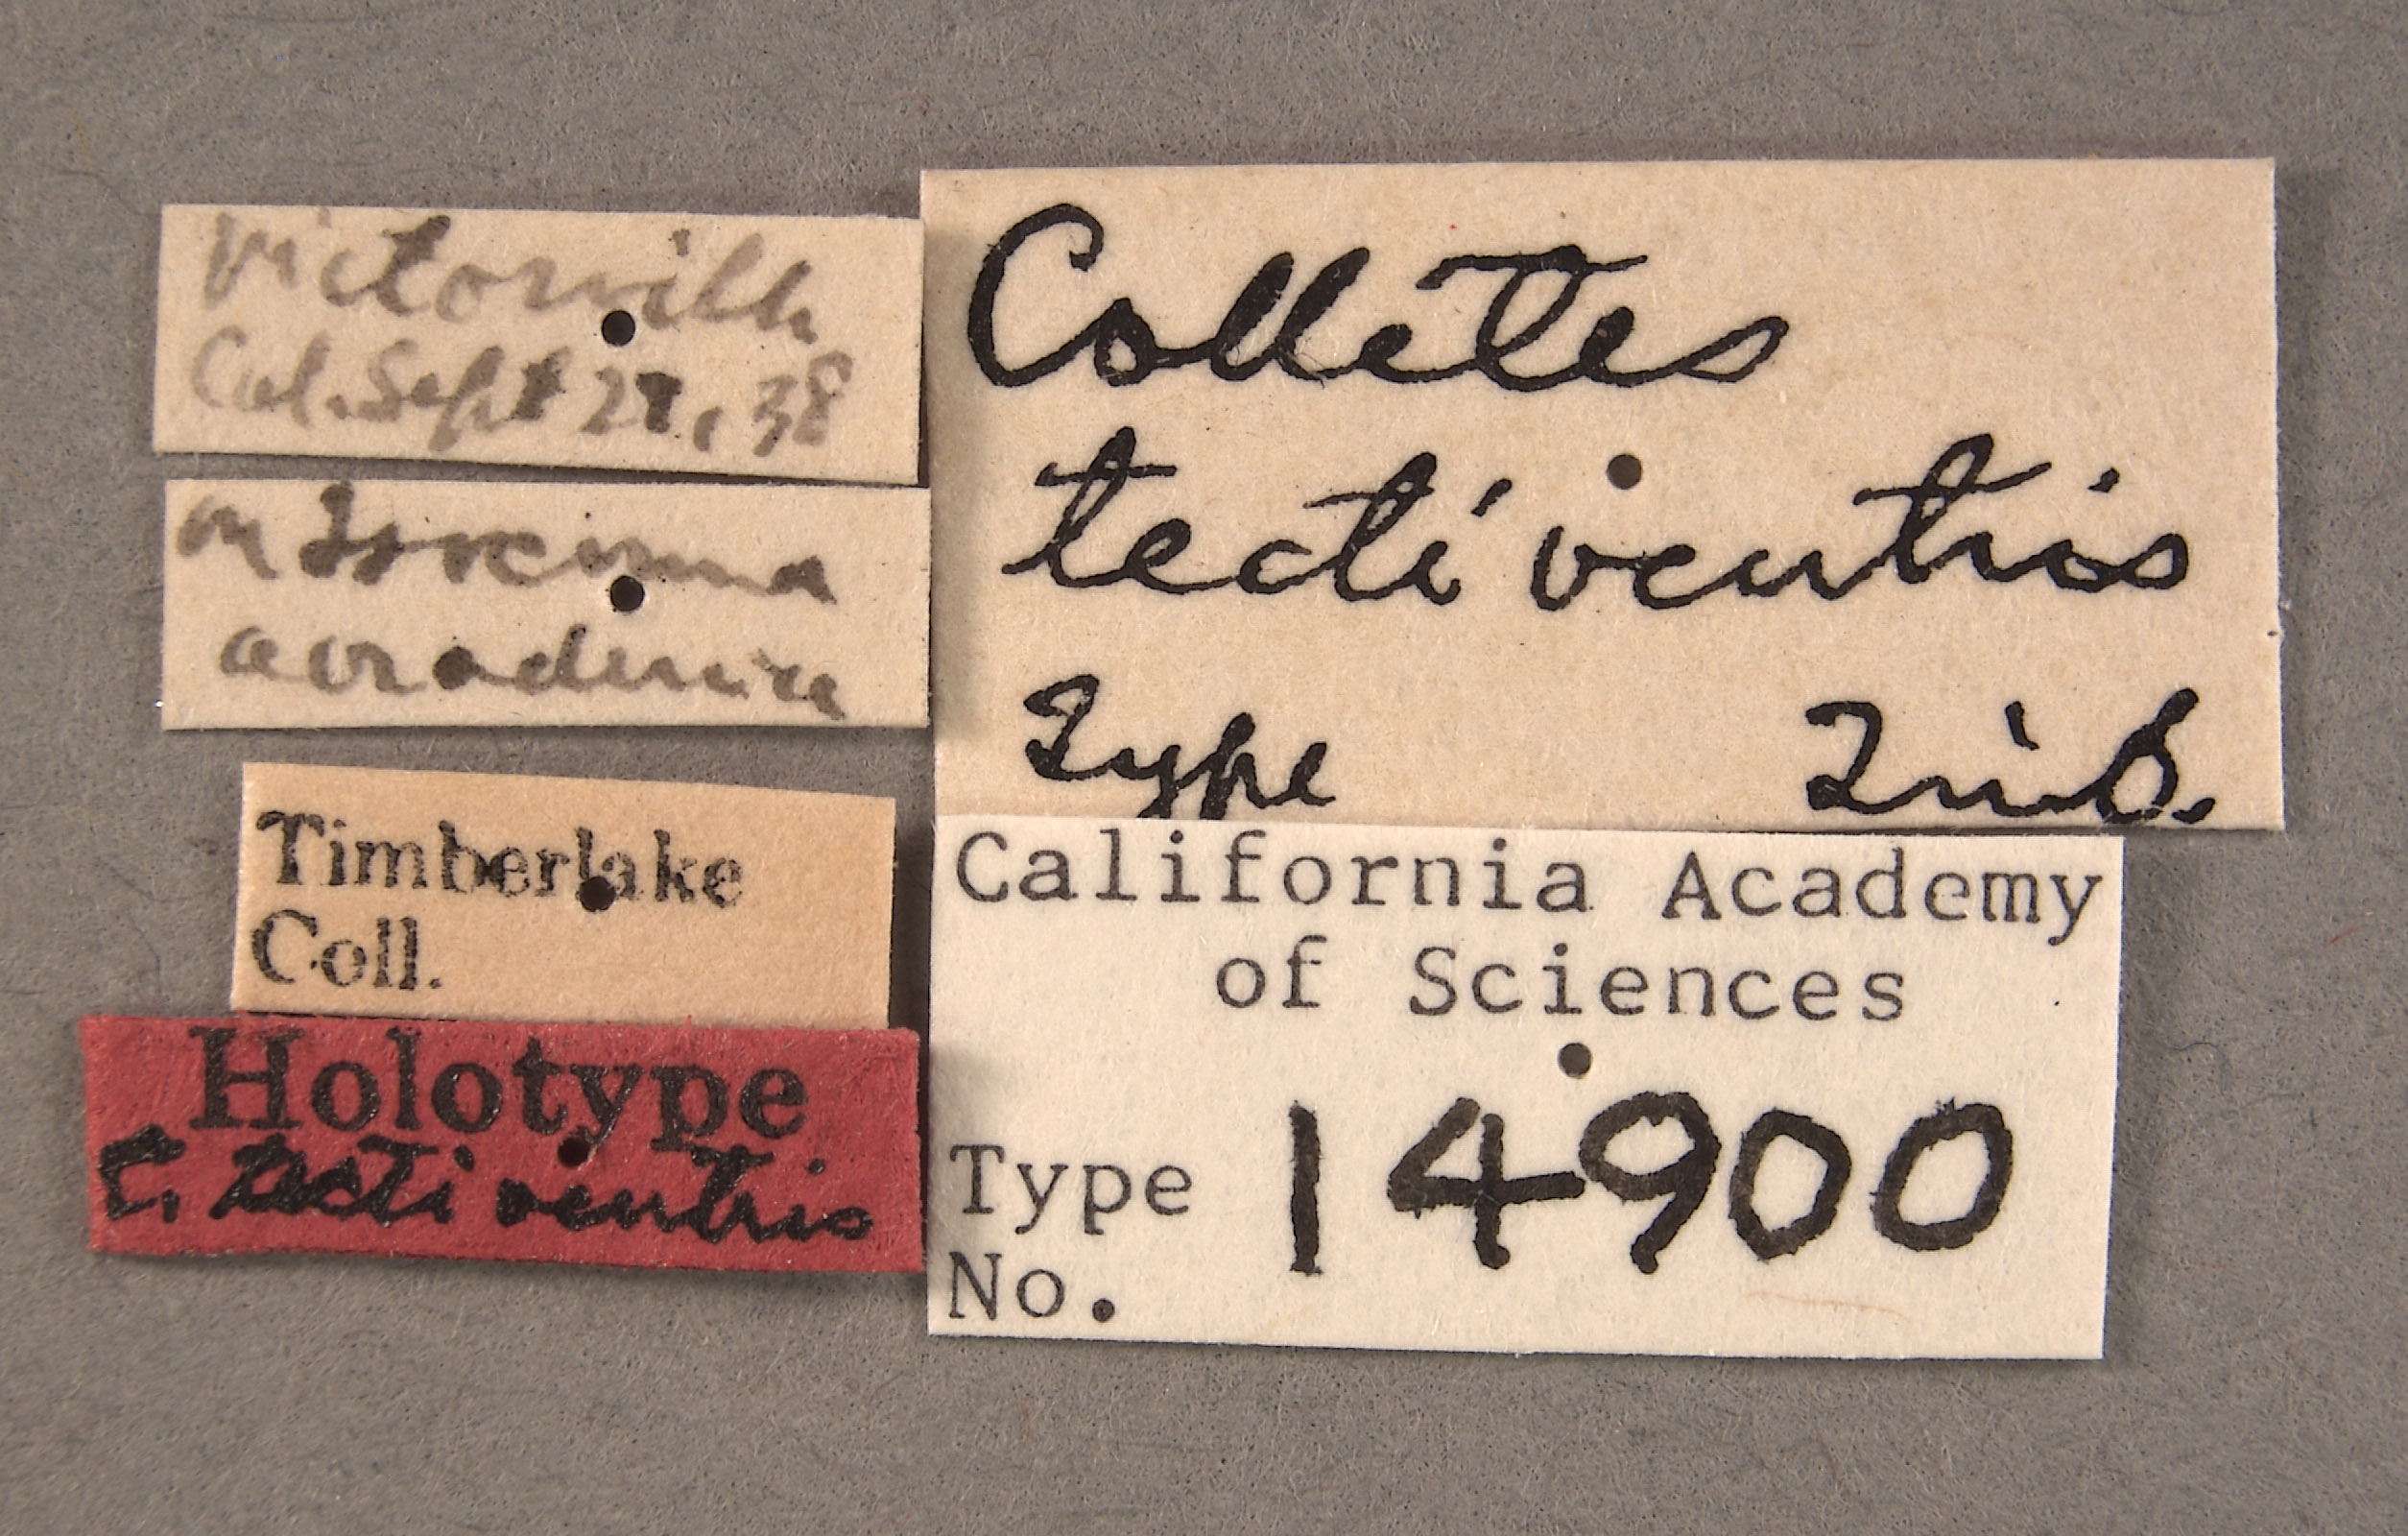 Victorville
Cal. Sept 29, 38
on Isocoma
acradenia
Timberlake
Coll.
Holotype
C. tectiventris
Colletes
tectiventris
Type Timb.
California Academy
of Sciences
Type 14900
No.